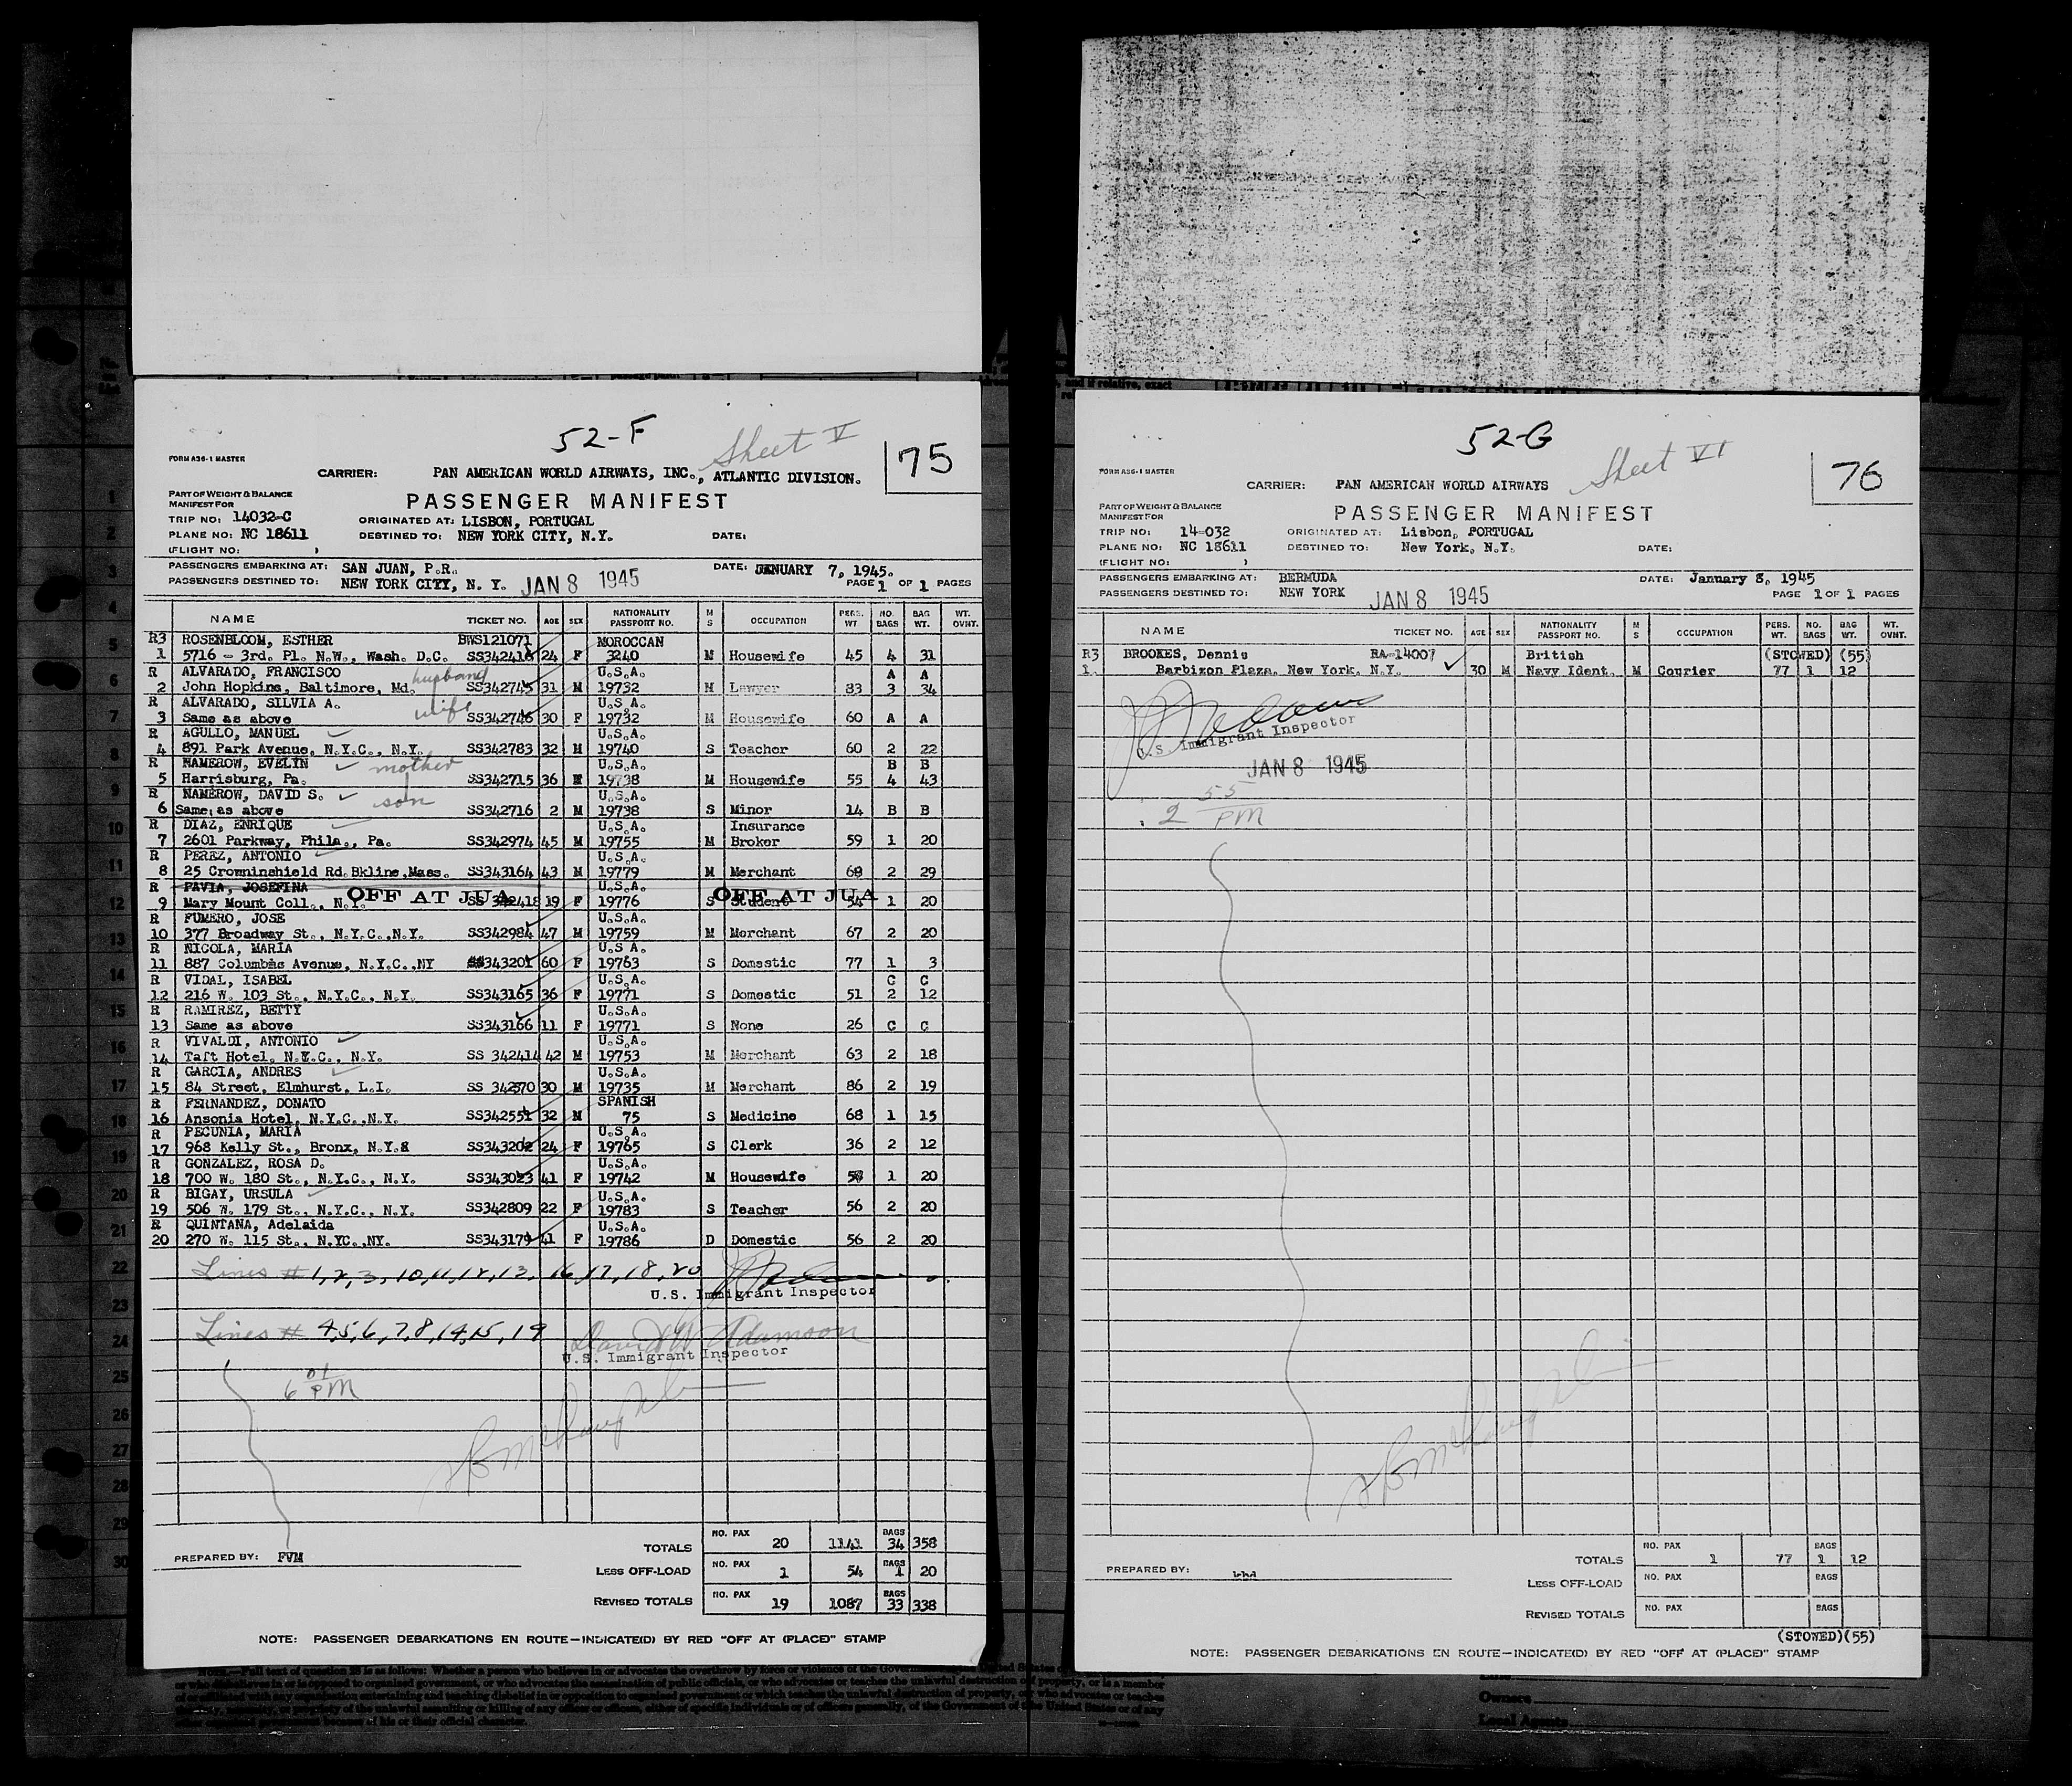 52-F
Sheet V
75
FORM A36-1 MASTER
CARRIER: PAN AMERICAN WORLD AIRWAYS, INC., ATLANTIC DIVISION.
PART OF WEIGHT & BALANCE
MANIFEST FOR
PASSENGER MANIFEST
TRIP NO: 14032-C ORIGINATED AT: LISBON, PORTUGAL
PLANE NO: NC 18611 DESTINED TO: NEW YORK CITY, N.Y. DATE:
(FLIGHT NO: )
PASSENGERS EMBARKING AT: SAN JUAN, P.R. DATE: JANUARY 7, 1945.
PASSENGERS DESTINED TO: NEW YORK CITY, N. Y. JAN 8 1945 PAGE 1 OF 1 PAGES
NAME TICKET NO. AGE SEX NATIONALITY PASSPORT NO. M S OCCUPATION PERS. WT NO. BAGS BAG WT. WT. OVNT.
R3 ROSENBLOOM, ESTHER BWS121071 MOROCCAN
1 5716 - 3rd. Pl. N.W., Wash. D.C. SS342416 24 F 3240 M Housewife 45 4 31
R ALVARADO, FRANCISCO husband U.S.A. A A
2 John Hopkins, Baltimore, Md. SS342745 31 M 19732 M Lawyer 83 3 34
R ALVARADO, SILVIA A. wife U.S.A.
3 Same as above SS342746 30 F 19732 M Housewife 60 A A
R AGULLO, MANUEL U.S.A.
4 891 Park Avenue, N.Y.C., N.Y. SS342783 32 M 19740 S Teacher 60 2 22
R NAMEROW, EVELYN mother U.S.A. B B
5 Harrisburg, Pa. SS342715 36 19738 M Housewife 55 4 43
R NAMEROW, DAVID S. son U.S.A.
6 Same as above SS342716 2 M 19738 S Minor 14 B B
R DIAZ, ENRIQUE U.S.A. Insurance
7 2601 Parkway, Phila., Pa. SS342974 45 M 19755 M Broker 59 1 20
R PEREZ, ANTONIO U.S.A.
8 25 Crowninshield Rd. Bkline, Mass. SS343164 43 M 19779 M Merchant 68 2 29
R PAVIA, JOSEFINA OFF AT JUA U.S.A. OFF AT JUA
9 Mary Mount Coll., N.Y. SS 342418 19 F 19776 S Student 54 1 20
R FUMERO, JOSE U.S.A.
10 377 Broadway St., N.Y.C., N.Y. SS342984 47 M 19759 M Merchant 67 2 20
R NICOLA, MARIA U.S.A.
11 887 Columbus Avenue, N.Y.C., NY SS343201 60 F 19763 S Domestic 77 1 3
R VIDAL, ISABEL U.S.A. C C
12 216 W. 103 St., N.Y.C., N.Y. SS343165 36 F 19771 S Domestic 51 2 12
R RAMIREZ, BETTY U.S.A.
13 Same as above SS343166 11 F 19771 S None 26 C C
R VIVALDI, ANTONIO U.S.A.
14 Taft Hotel, N.Y.C., N.Y. SS 342414 42 M 19753 M Merchant 63 2 18
R GARCIA, ANDRES U.S.A.
15 84 Street, Elmhurst, L.I. SS 342370 30 M 19735 M Merchant 86 2 19
R FERNANDEZ, DONATO SPANISH
16 Ansonia Hotel, N.Y.C., N.Y. SS342551 32 M 75 S Medicine 68 1 15
R PECUNIA, MARIA U.S.A.
17 968 Kelly St., Bronx, N.Y. SS343202 24 F 19765 S Clerk 36 2 12
R GONZALEZ, ROSA D. U.S.A.
18 700 W. 180 St., N.Y.C., N.Y. SS343023 41 F 19742 M Housewife 1 20
R BIGAY, URSULA U.S.A.
19 506 W. 179 St., N.Y.C., N.Y. SS342809 22 F 19783 S Teacher 56 2 20
R QUINTANA, Adelaida U.S.A.
20 270 W. 115 St., N.YC., NY. SS343179 41 F 19786 D Domestic 56 2 20
Lines # 1, 2, 3, 10, 11, 12, 13, 16, 17, 18, 20
U.S. Immigrant Inspector
Lines # 4,5,6,7,8,14,15,19 David W Adamson
U.S. Immigrant Inspector
6 01 PM
TOTALS NO. PAX 20 1141 BAGS 34 358
PREPARED BY: FVM
LESS OFF-LOAD NO. PAX 1 54 BAGS 1 20
REVISED TOTALS NO. PAX 19 1087 BAGS 33 338
NOTE: PASSENGER DEBARKATIONS EN ROUTE—INDICATE(D) BY RED "OFF AT (PLACE)" STAMP
52-G
Sheet VI
76
FORM A36-1 MASTER
CARRIER: PAN AMERICAN WORLD AIRWAYS
PART OF WEIGHT & BALANCE
MANIFEST FOR
PASSENGER MANIFEST
TRIP NO: 14-032 ORIGINATED AT: Lisbon, PORTUGAL
PLANE NO: NC 18611 DESTINED TO: New York, N.Y. DATE:
(FLIGHT NO: )
PASSENGERS EMBARKING AT: BERMUDA DATE: January 8, 1945
PASSENGERS DESTINED TO: NEW YORK JAN 8 1945 PAGE 1 OF 1 PAGES
NAME TICKET NO. AGE SEX NATIONALITY PASSPORT NO. M S OCCUPATION PERS. WT. NO. BAGS BAG WT. WT. OVNT.
R3 BROOKES, Dennis RA-14007 British (STOWED) (55)
1. Barbizon Plaza, New York, N.Y. 30 M Navy Ident. M Courier 77 1 12
U.S. Immigrant Inspector
JAN 8 1945
2 55 PM
TOTALS NO. PAX 1 77 BAGS 1 12
PREPARED BY:
LESS OFF-LOAD NO. PAX BAGS
REVISED TOTALS NO. PAX BAGS
(STOWED)(55)
NOTE: PASSENGER DEBARKATIONS EN ROUTE—INDICATE(D) BY RED "OFF AT (PLACE)" STAMP